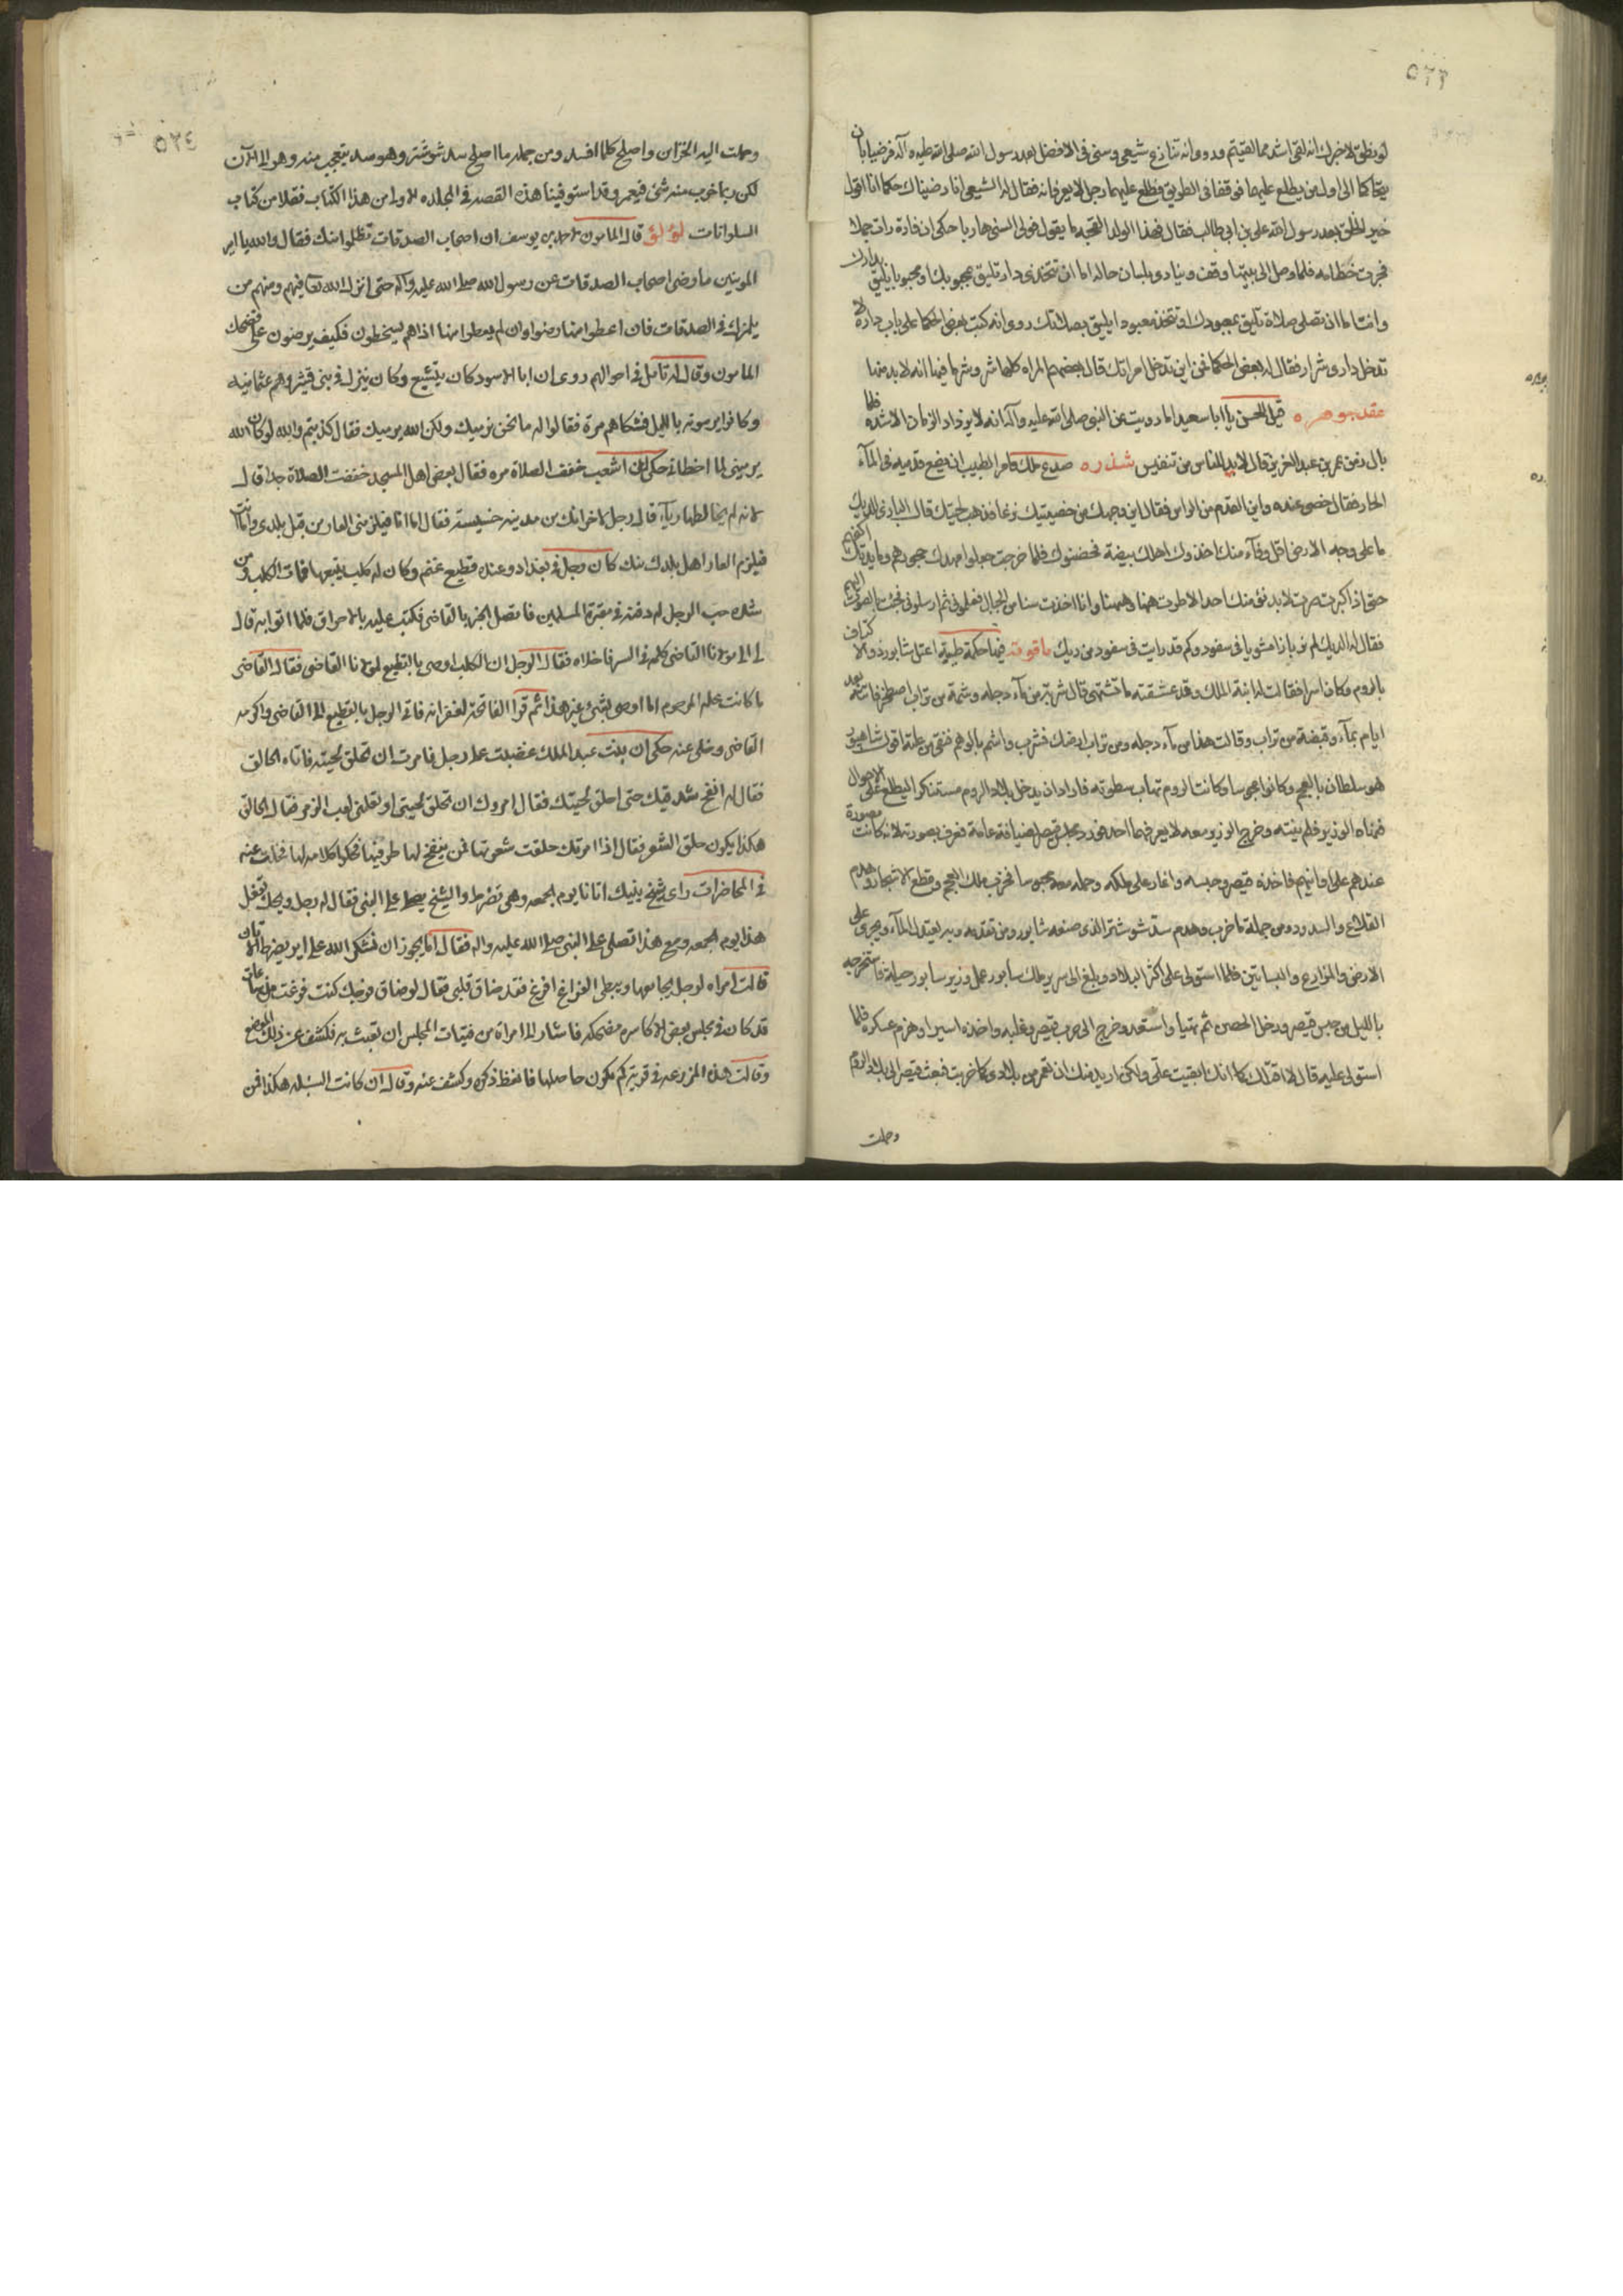 ٥٢٣
لو نطق لاخبرك انه لقي اشد مما لقيتم وروي انه تنازع شيعي وسني في الافضل بعد رسول الله صلى الله عليه وآله فرضيا بان
يتحاكما الى اول من يطلع عليهما فوقفا في الطريق فطلع عليهما رجل لا يعرفانه فقال له الشيعي انا رضيناك حكما انا اقول
خير الخلق بعد رسول الله علي بن ابي طالب فقال فهذا الولد القحبه ما يقول فولى السني هاربا حكي ان فارة رات جملا
فجرت خطامه فلما وصل الى بيتها وقف وينادي بلسان حاله اما ان تتخذي دارا تليق بمحبوبك او محبوبا يليق بدارك
وانت اما ان تصلي صلاة تليق بمعبودك او تتخذ معبودا يليق بصلاتك روي انه كتب بعض الحكما على باب داره لا
تدخل داري شر فقال له بعض الحكما فمن اين تدخل امراتك قال بعضهم المراه كلها شر وشر ما فيها انه لا بد منها
عقد جوهره قيل للحسن يا ابا سعيد اما رويت عن النبي صلى الله عليه وآله انه لا يزداد الزمان الا شده فما
بال زمن عمر بن عبد العزيز قال لا بد للناس من تنفيس شذره صدع ملك فامر الطبيب ان يضع قدميه في المآء
الحار فقال خصي عنده واين القدم من الراس فقال اين وجهك من خصيتيك نزعتا فذهب لحيتك قال البازي للديك
ما على وجه الارض اقل وفآء منك اخذوك اهلك بيضة فحضنوك فلما خرجت جعلوا مهدك حجورهم ومائدتك اكفهم
حتى اذا كبرت صرت لا يدنو منك احد الا طرت ههنا وههنا وانا اخذت مسنا من الجبال فعلموني ثم ارسلوني فجئت بالصيد اليهم
فقال له الديك لم تر بازا مشويا في سفود وكم قد رايت في سفود من ديك ياقوته فيها حكمة طبية اعتل شابور ذو الاكتاف
بالروم وكان اسيرا فقالت له ابنة الملك وقد عشقته ما تشتهي قال شربة من مآء دجله وشمة من تراب اصطخر فاتته بعد
ايام بمآء وقبضة من تراب وقالت هذا من مآء دجله ومن تراب ارضك فشرب واشتم بالوهم فنقي من علته اقول شاهبور
هو سلطان بالعجم وكانوا مجوسا وكانت الروم تهاب سطوته فاراد ان يدخل بلاد الروم مستنكرا ليطلع على الاحوال
فنهاه الوزير فلم ينته وخرج الوزير معه لا يعرفهما احد فورد مجلس قيصر لضيافة عامة فعرف بصورته لانه كانت مصورة
عندهم على اوانيهم فاخذه قيصر وحبسه واغار على ملكه وحمله معه محبوسا فخرب ملك العجم وقطع الاشجار وهدم
القلاع والسدود ومن جملة ما خرب وهدم سد شوشتر الذي صنعه شابور ومن تقدمه وبه يعتدل المآء ويجري على
الارض والمزارع والبساتين فلما استولى على اكثر البلاد وبلغ الى سرير ملك سابور عمل وزير سابور حيلة فاستخرجه
بالليل من حبس قيصر ودخل الحصن ثم تهيا واستعد وخرج الى حرب قيصر وغلبه واخذه اسيرا وهزم عسكره فلما
استولى عليه قال لا اقتلك كما انك ابقيت علي ولكن اريد منك ان تعمر من بلادي كلما خربت فبعث قيصر الى بلاد الروم
وحملت
٥٢٤
وحملت اليه الخزاين واصلح كلما افسد ومن جمله ما اصلح سد شوشتر وهو سد يتعجب منه وهو الى الآن
لكن ربما خرب منه شئ فيعمر وقد استوفينا هذه القصه في المجلده الاولى من هذا الكتاب نقلا من كتاب
السلوانات لؤلؤ قال المامون لاحمد بن يوسف ان اصحاب الصدقات تظلموا منك فقال والله يا امير
المومنين ما رضي اصحاب الصدقات عن رسول الله صلى الله عليه وآله حتى انزل الله تعا فيهم ومنهم من
يلمزك في الصدقات فان اعطوا منها رضوا وان لم يعطوا منها اذا هم يسخطون فكيف يرضون عني فضحك
المامون وقال له تامل في احوالهم روى ان ابا الاسود كان يتشيع وكان ينزل في بني قشير وهم عثمانيه
وكانوا يرمونه بالليل فشكاهم مرة فقالوا له ما نحن نرميك ولكن الله يرميك فقال كذبتم والله لو كان الله
يرميني لما اخطاني حكي ان اشعب خفف الصلاة مره فقال بعض اهل المسجد خففت الصلاة جدا قال
لانه لم يخالطها رياء قال رجل لاخر انك من مدينه خسيسة فقال اما انا فيلزمني العار من قبل بلدي واما انت
فيلزم العار اهل بلدك منك كان رجل في بغداد وعنده قطيع غنم وكان له كلب يتبعها فمات الكلب ومن
شده حب الرجل له دفنه في مقبرة المسلمين فاتصل الخبر بالقاضي فكتب عليه بالاحراق فلما اتوا به قال
لي الى مولانا القاضي كلمه في السر فاخلاه فقال الرجل ان الكلب اوصى بالقطيع لمولانا القاضي فقال القاضي
ما كانت علة المرحوم اما اوصى بشئ غير هذا ثم قرا الفاتحة لغفرانه فاتى الرجل بالقطيع الى القاضي واكرمه
القاضي وخلى عنه حكي ان بنت عبد الملك غضبت على رجل فامرت ان تحلق لحيته فاتاه الحالق
فقال له انفخ شدقيك حتى احلق لحيتك فقال امروك ان تحلق لحيتي او تعلمني لعب الزمر فقال الحالق
هكذا يكون حلق الشعر فقال اذا امرتك حلقت شعرتها فمن ينفخ لها طرفيها فحكوا كلامه لها فخلت عنه
في المحاضرات راى شيخ ينيك اتانا يوم الجمعه وهي تضرط والشيخ يصلى على النبي فقال له رجل ويحك تفعل
هذا يوم الجمعه ومع هذا تصلي على النبي صلى الله عليه واله فقال اما يجوز ان نشكر الله على اير يضرط الاتان
قالت امراه لرجل يجامعها ويبطي الفراغ افرغ فقد ضاق قلبي فقال لو ضاق فرجك كنت فرغت من ساعة
قد كان في مجلس بعض الاكاسره مضحكه فاشار الى امراة من قينات المجلس ان تعبث به فكشف عن ذلك الموضع
وقالت هذه المزرعه في قريتكم كم يكون حاصلها فانعظ ذكره وكشف عنه وقال ان كانت السنبله هكذا فمن